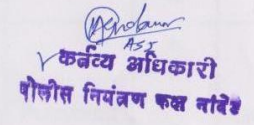 ASI
कर्तव्य अधिकारी
पोलीस नियंत्रण कक्ष नांदेड